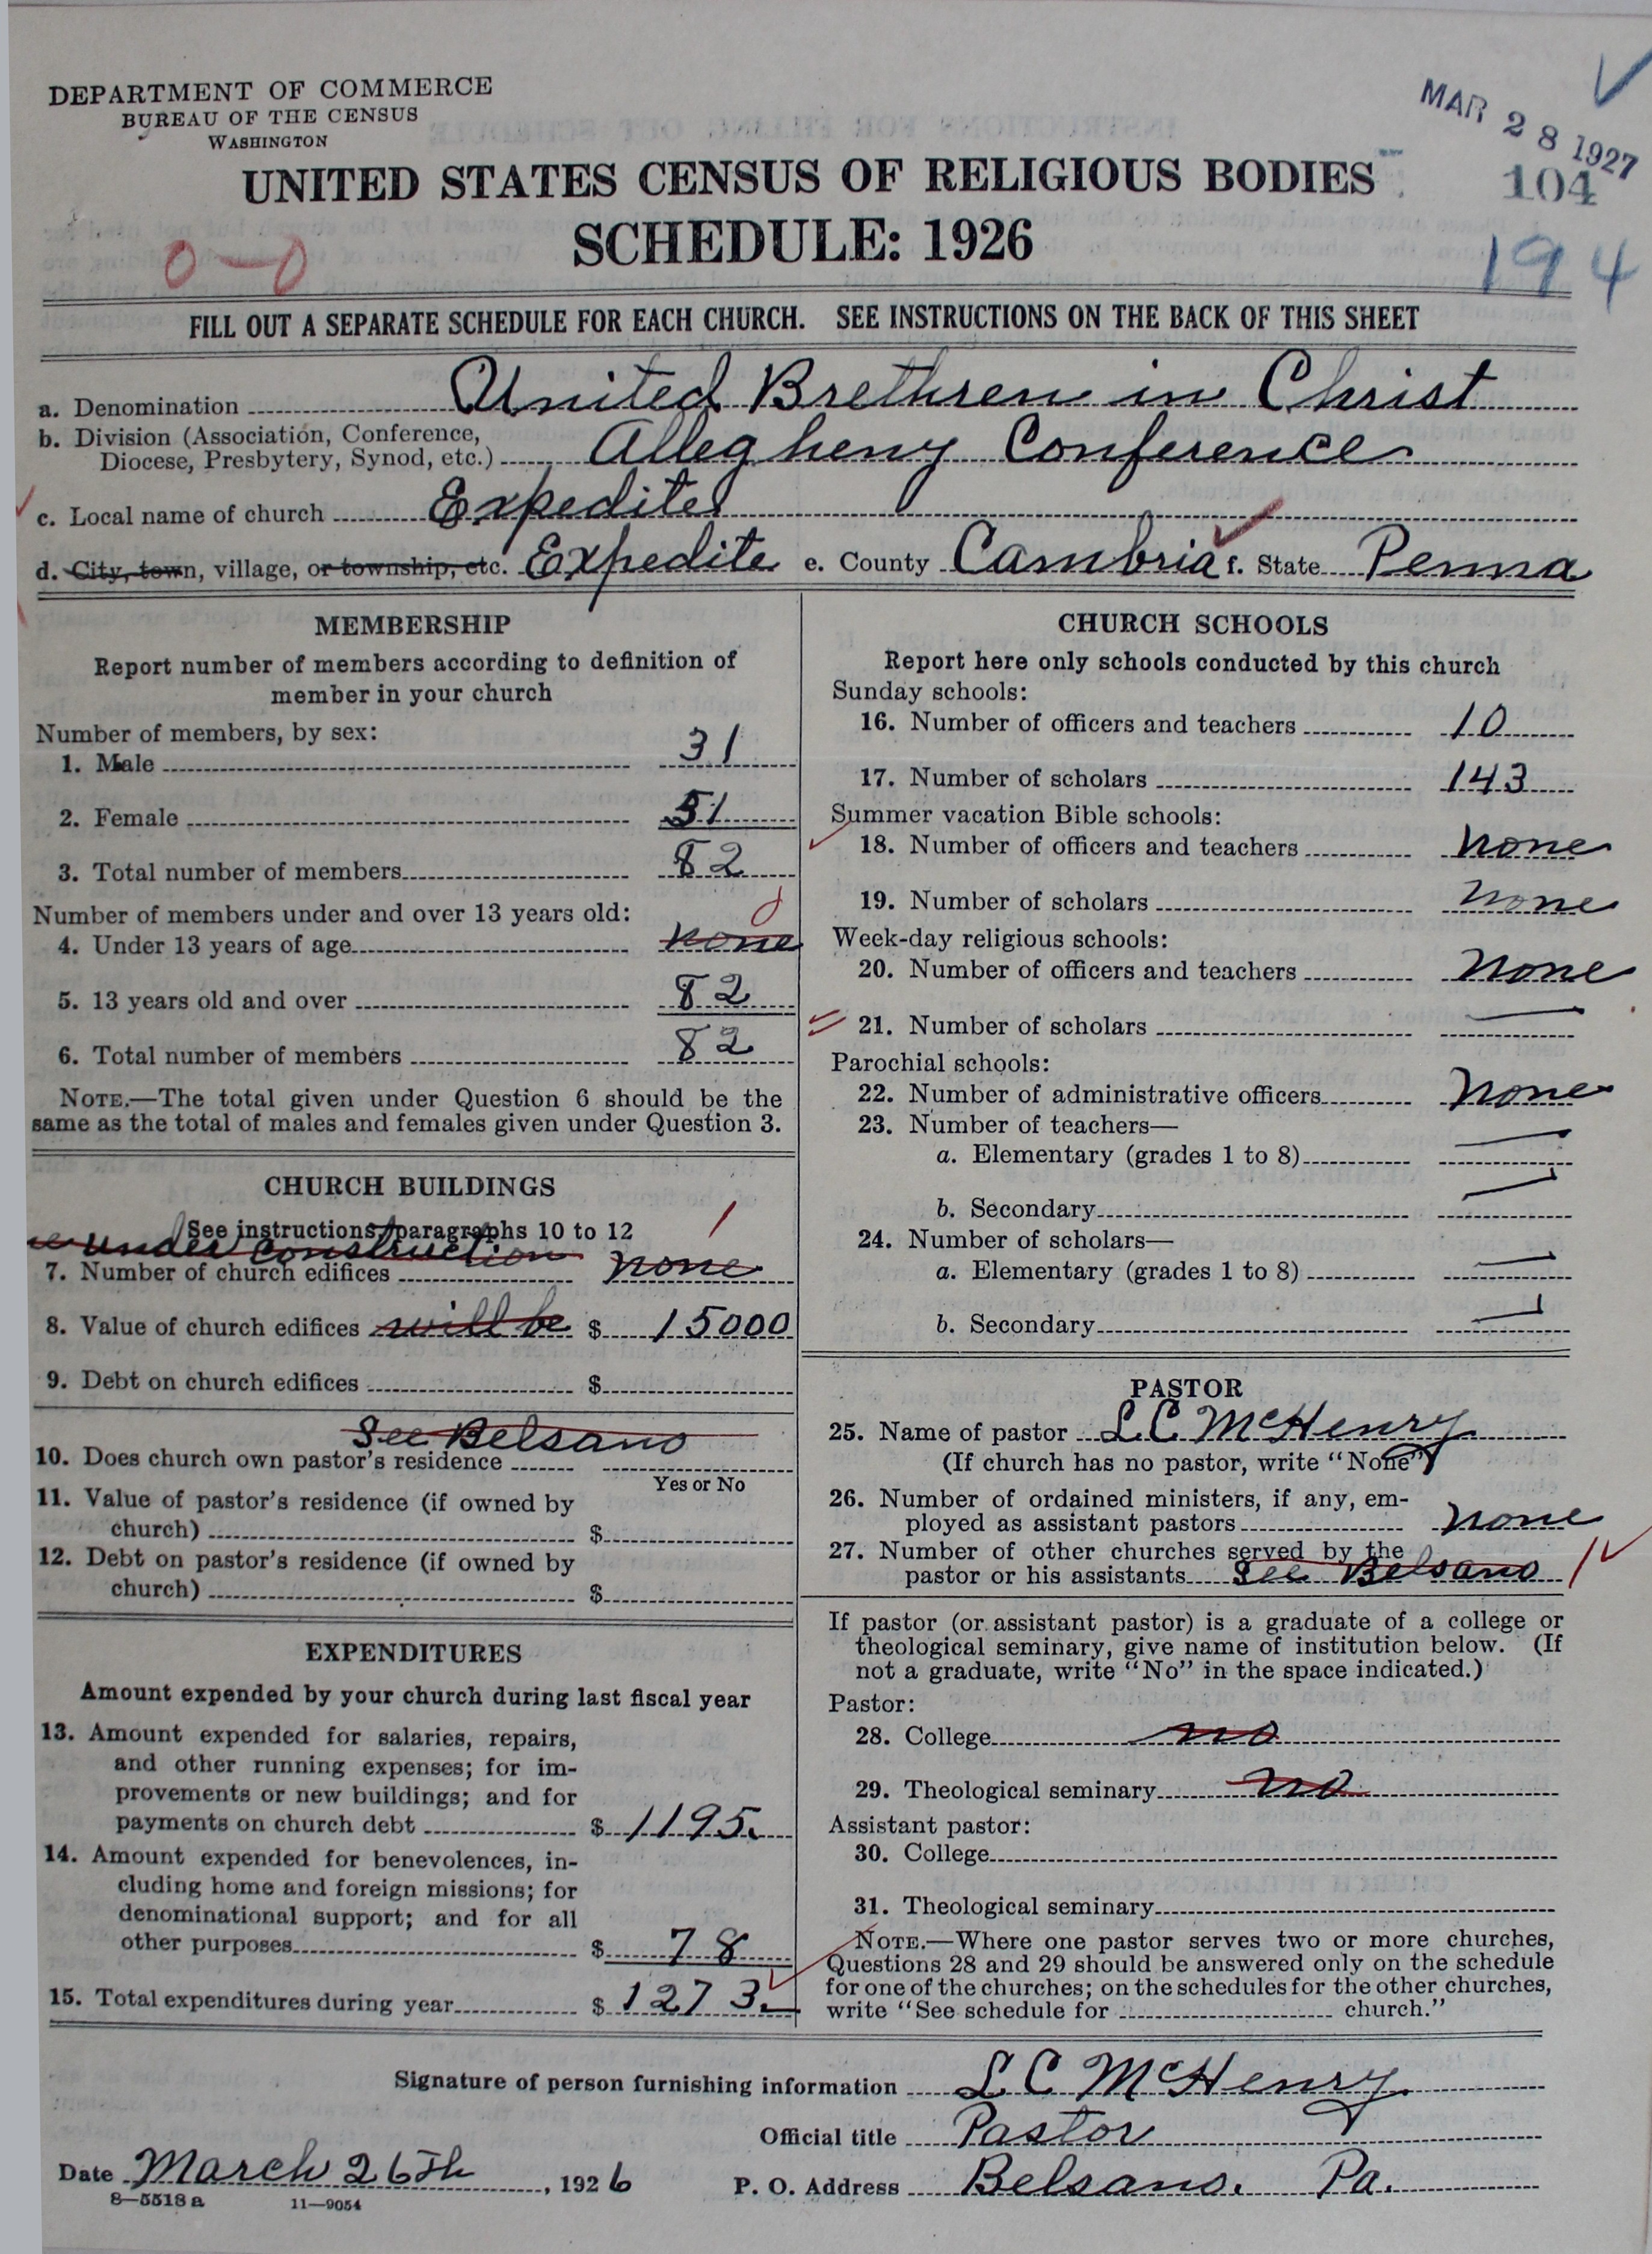 DEPARTMENT OF COMMERCE
BUREAU OF THE CENSUS
WASHINGTON
MAR 28 1927
104
194
UNITED STATES CENSUS OF RELIGIOUS BODIES
SCHEDULE: 1926
0—0
FILL OUT A SEPARATE SCHEDULE FOR EACH CHURCH. SEE INSTRUCTIONS ON THE BACK OF THIS SHEET
a. Denomination United Brethren in Christ
b. Division (Association, Conference,
Diocese, Presbytery, Synod, etc.) Allegheny Conference
c. Local name of church Expedite
d. City, town, village, or township, etc. Expedite e. County Cambria f. State Penna
MEMBERSHIP
Report number of members according to definition of
member in your church
Number of members, by sex:
1. Male 31
2. Female 51
3. Total number of members 82
Number of members under and over 13 years old:
0
4. Under 13 years of age none
5. 13 years old and over 82
6. Total number of members 82
NOTE.—The total given under Question 6 should be the
same as the total of males and females given under Question 3.
CHURCH BUILDINGS
See instructions, paragraphs 10 to 12
1
under construction
7. Number of church edifices none
8. Value of church edifices will be $ 15000
9. Debt on church edifices $
See Belsano
10. Does church own pastor's residence
Yes or No
11. Value of pastor's residence (if owned by
church) $
12. Debt on pastor's residence (if owned by
church) $
EXPENDITURES
Amount expended by your church during last fiscal year
13. Amount expended for salaries, repairs,
and other running expenses; for im-
provements or new buildings; and for
payments on church debt $ 1195.
14. Amount expended for benevolences, in-
cluding home and foreign missions; for
denominational support; and for all
other purposes $ 78
15. Total expenditures during year $ 1273.
CHURCH SCHOOLS
Report here only schools conducted by this church
Sunday schools:
16. Number of officers and teachers 10
17. Number of scholars 143
Summer vacation Bible schools:
18. Number of officers and teachers none
19. Number of scholars none
Week-day religious schools:
20. Number of officers and teachers none
21. Number of scholars —
Parochial schools:
22. Number of administrative officers none
23. Number of teachers—
a. Elementary (grades 1 to 8) —
b. Secondary —
24. Number of scholars—
a. Elementary (grades 1 to 8) —
b. Secondary —
PASTOR
25. Name of pastor L C McHenry
(If church has no pastor, write "None")
26. Number of ordained ministers, if any, em-
ployed as assistant pastors none
27. Number of other churches served by the
pastor or his assistants See Belsano 1
If pastor (or assistant pastor) is a graduate of a college or
theological seminary, give name of institution below. (If
not a graduate, write "No" in the space indicated.)
Pastor:
28. College no
29. Theological seminary no
Assistant pastor:
30. College
31. Theological seminary
NOTE.—Where one pastor serves two or more churches,
Questions 28 and 29 should be answered only on the schedule
for one of the churches; on the schedules for the other churches,
write "See schedule for church."
Signature of person furnishing information L C McHenry
Official title Pastor
Date March 26th, 1926
P. O. Address Belsano. Pa.
8—5518 a 11—9054